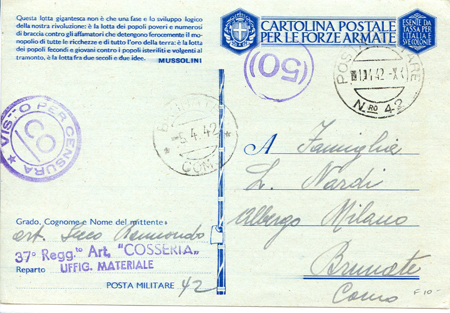 Questa lotta gigantesca non è che una fase e lo sviluppo logico
della nostra rivoluzione; è la lotta dei popoli poveri e numerosi
di braccia contro gli affamatori che detengono ferocemente il mo-
nopolio di tutte le ricchezze e di tutto l'oro della terra; è la lotta
dei popoli fecondi e giovani contro i popoli isteriliti e volgenti al
tramonto, è la lotta fra due secoli e due idee.
MUSSOLINI
CARTOLINA POSTALE
PER LE FORZE ARMATE
ESENTE DA
TASSA PER
L'ITALIA E
SVE COLONIE
(50)
POSTA
42-X
N.RO 42
VISTO PER CENSURA
4.42
COMO
A Famiglia
L. Nardi
Albergo Milano
Brunate
Como
Grado, Cognome e Nome del mittente
art.
37° Regg.to Art. "COSSERIA"
Reparto UFFIG. MATERIALE
POSTA MILITARE 42